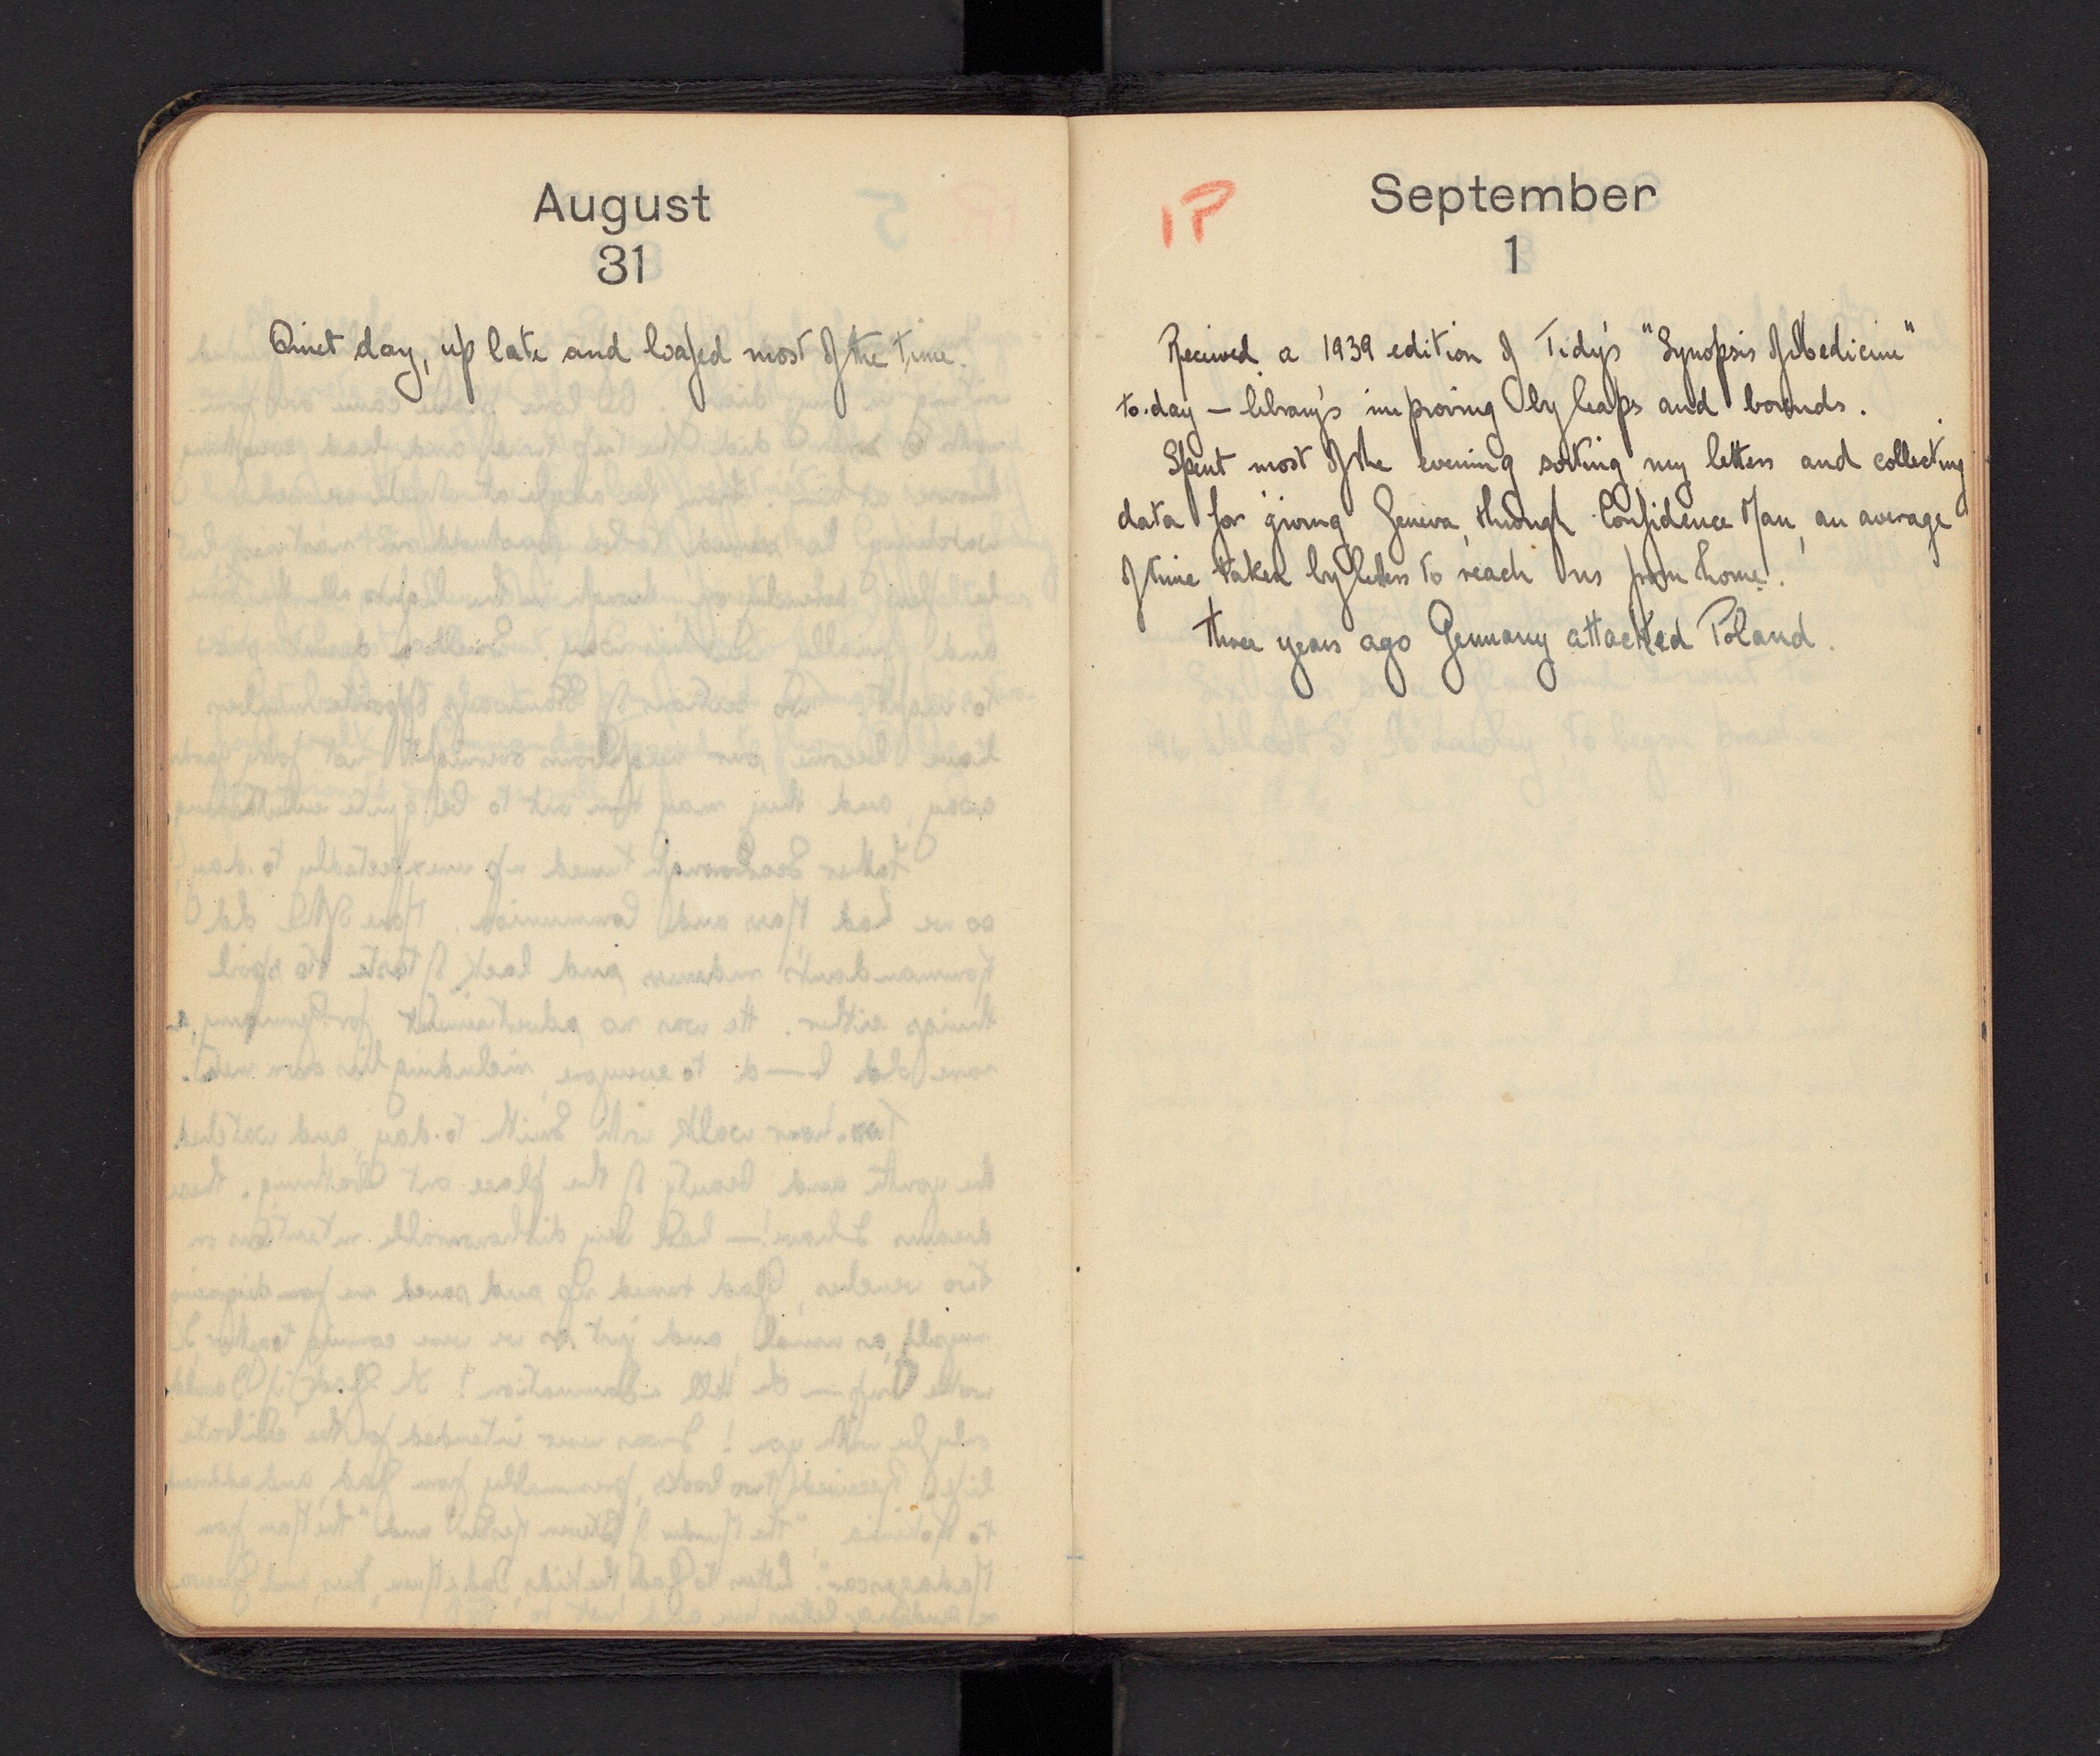 August
31
Quiet day, up late and loafed most of the time.
1P
September
1
Received a 1939 edition of Tidy's "Synopsis of Medicine"
to-day — library's improving by leaps and bounds.
Spent most of the evening sorting my letters and collecting
data for giving Geneva, through Confidence Man, an average
of time taken by letters to reach us from home.
Three years ago Germany attacked Poland.